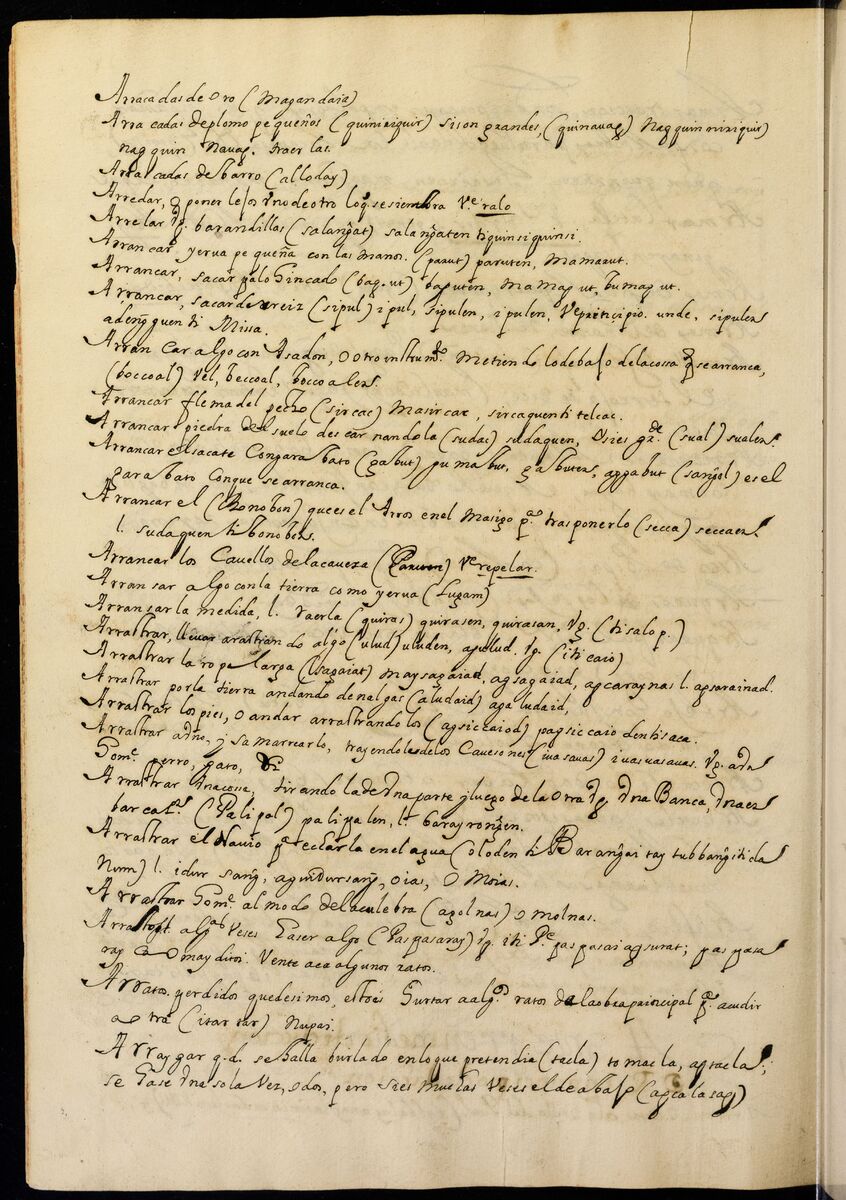 Arracadas de Oro (Magandaia)
Arracadas de plomo pequeños (quiniriquir) si son grandes, (quinauag) Nag quin niriquir)
nag quin Nauag. traer las.
Arracadas de barro (alloday)
Arredar, o poner lejos vno de otro lo q. se siembra Ve. ralo
Arrelar Vg. barandillas (salangat) salangaten ti quinsi quinsi.
Arrancar yerua pequeña con las manos. (parut) paruten, Mamarut.
Arrancar, sacar palo hincado (bag-ut) baguten, Mamag ut, bumag ut.
Arrancar, sacar de rreiz (sipul) ipul, sipulen, ipulen, Ve. unde, sipulen
ti Missa.
Arrancar algo con Asadon, o otro instrumto. Metiendolo debajo de la cossa q se arranca,
(boccoal) Vel, beccoal, boccoalen.
Arrancar flema del pecho (sircac) Masircac, sircaquen ti telcac.
Arrancar piedra del suelo descarnandola (sudac) sudaquen, Osies gde. (sual) sualen.
Arrancar el sacate Con garabato (gabut) gumabut, gabuten, aggabut (sangol) es el
garabato Con que se arranca.
Arrancar el (Bonobon) que es el Arros en el Masigo pa. trasponerlo (secca) seccaen
l. sudaquen ti bonobon.
Arrancar los Cauellos de la caueza () Ve. repelar.
Arransar algo con la tierra como yerua (Lugam)
Arransar la medida, l. raerla (quiras) quirasen, quirasan, Vg. (ti salop.)
Arrastrar, lleuar arastrando algo (ulud) uluden, agulud, Vg. (iti caio)
Arrastrar la ropa larga (sagaiat) maysagaiat, agsagaiad, agcaraynas l. agsarainad.
Arrastrar por la tierra andando de nalgas (aludaid) agaludaid,
Arrastrar los pies, o andar arrastrando los (agsiccaiod) pagsiccaio dentisaca.
Arrastrar y samarrearlo, trayendole de los Cauesones (iuasauas) iuasuasauas. Vg.
home. perro, gato, &
Arrastrar Vna cossa, tirandola de Vna parte y luego de la otra Vg. Vna Banca, Vna en
barcan. (Palipal) palipalen, l. garayrongen.
Arrastrar el Nauio pa echarla en el agua (oloden ti Barangai tay tubbang iti da
Num) l. idur sang, agindursang, oias, O Moias.
Arrastrar home. al modo de la culebra (agolnas) o molnas.
algas Veses haser algo (Paspasaray) Vg. iti Pe. paspasarai agsurat; paspasa
ray maydito. Vente aca algunos ratos.
Arratos, perdidos que desimos, esto es hurtar a algos. ratos de la obra principal pa. acudir
a otra (itar tar) Nupai.
Arraygar q.d. se halla burlado en lo que pretendia (tacla) tomacla, agtacla;
se hase Vna sola Vez, o dos, pero si es muchas Veses el de abajo (agcalasag)